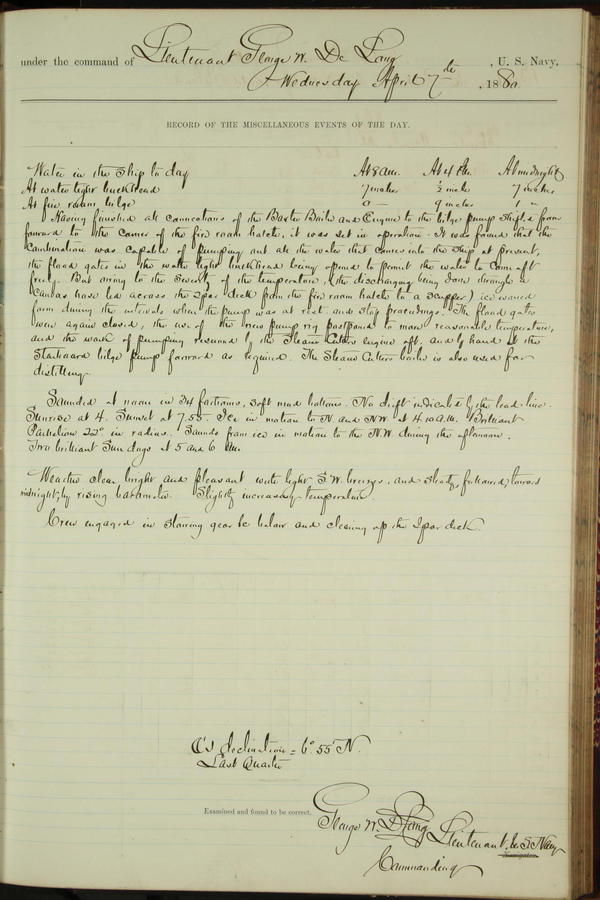 under the command of Lieutenant George W. De Long, U. S. Navy,
Wednesday April 7th, 1880
RECORD OF THE MISCELLANEOUS EVENTS OF THE DAY.
Water in the Ship to day At 8 am. At 4 Pm. At midnight
At water tight bulkhead 7 inches 3 inches 7 inches
At fire room bilge 0 — 9 inches 1 "
Having finished all connections of the Baxter Boiler and Engine to the bilge pump shipped from
forward to the corner of the fire room hatch, it was set in operation. It was found that the
combination was capable of pumping out all the water that comes into the ship at present,
the flood gates in the water tight bulkhead being opened to permit the water to come aft
freely. But owing to the severity of the temperature, (the discharging being done through a
canvas hose led across the spar deck from the fire room hatch to a scupper) ice would
form during the intervals when the pump was at rest and stop proceedings. The flood gates
were again closed, the use of the new pump rig postponed to more reasonable temperature,
and the work of pumping resumed by the Steam Cutters engine aft, and by hand at the
Starboard bilge pump forward as required. The Steam Cutters boiler is also used for
distilling.
Sounded at noon in 34 fathoms, soft mud bottom. No drift indicated by the lead line.
Sunrise at 4. Sunset at 7.55. Ice in motion to N. and NW. at 4.10 a.m. Brilliant
Parhelion 22° in radius. Sounds from ice in motion to the N.W. during the afternoon.
Two brilliant Sun dogs at 5 and 6 Pm.
Weather clear bright and pleasant with light S.W. breezes, and steady, followed, towards
midnight, by rising barometer. Slightly increasing temperature.
Crew engaged in stowing gear &c below and clearing up the Spar deck.
☾'s declination = 6° 55' N.
Last Quarter
Examined and found to be correct.
George W. De Long Lieutenant, U. S. Navy
Navigator.
Commanding